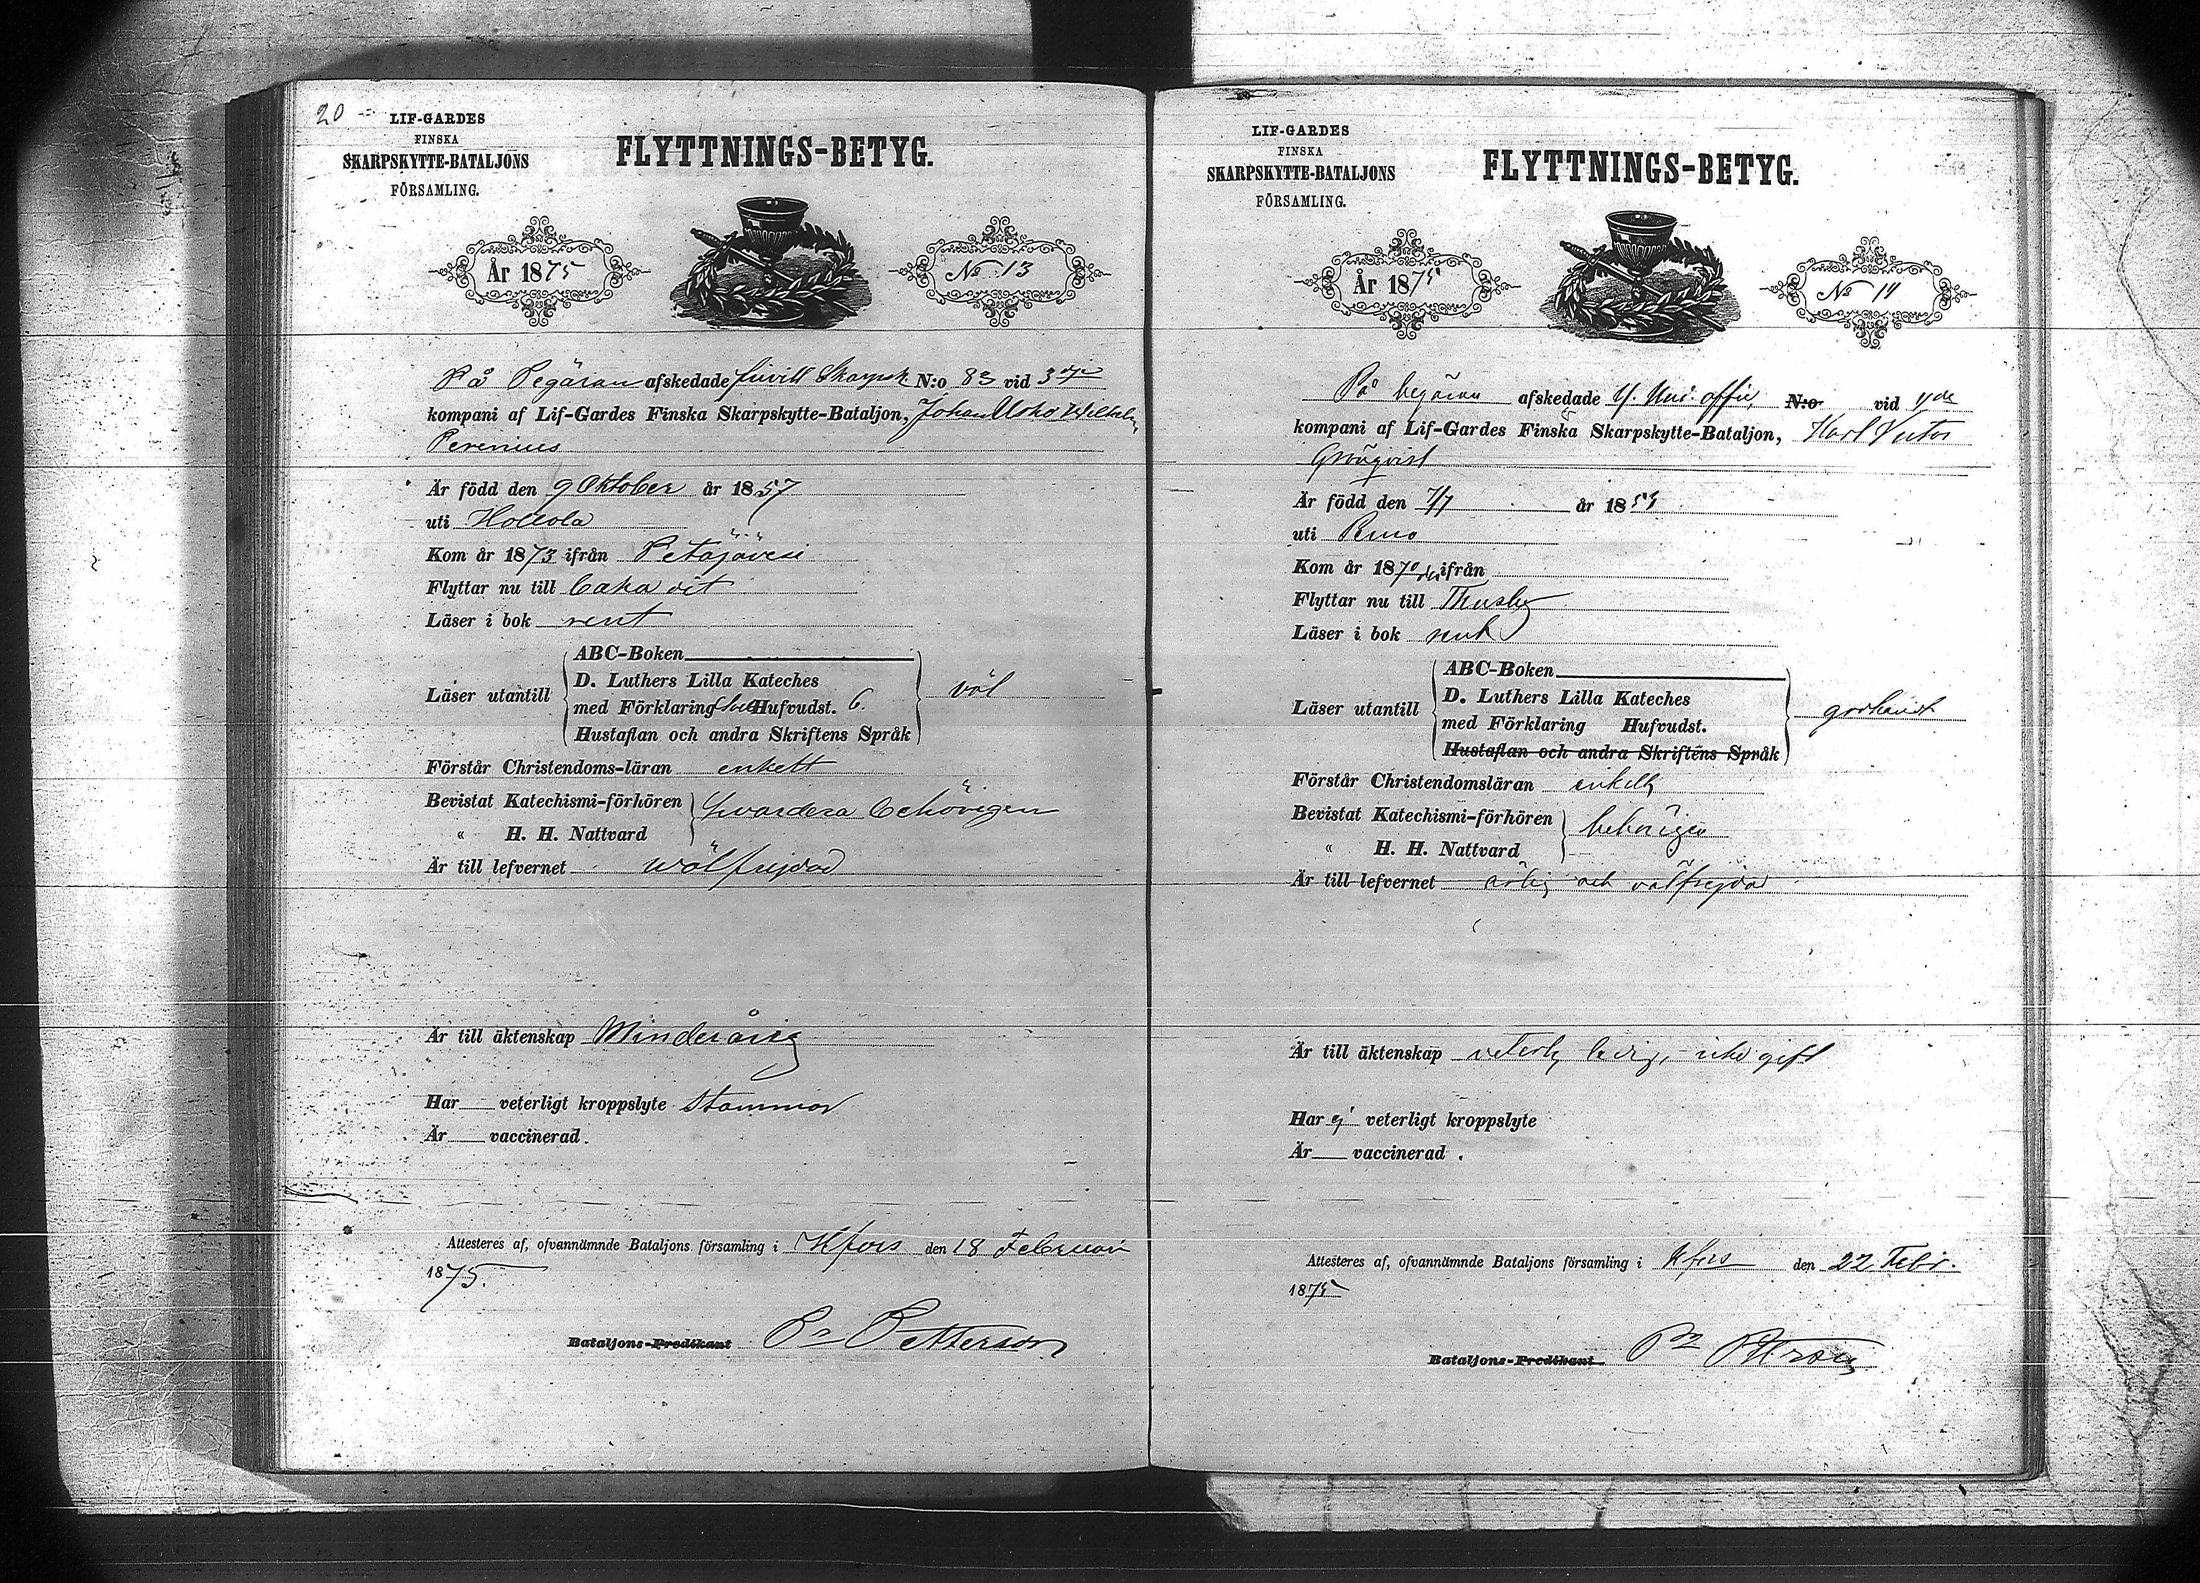 20
LIF-GARDES
FINSKA
SKARPSKYTTE-BATALJONS
FÖRSAMLING.
FLYTTNINGS-BETYG.
År 1875
No 13
På Begäran afskedade frivill Skarpsk. N:o 83 vid 3dje
kompani af Lif-Gardes Finska Skarpskytte-Bataljon, Johan Wilhelm
Perenius
Är född den 9 Oktober år 1857
uti Hollola
Kom år 1873 ifrån Petäjävesi
Flyttar nu till
Läser i bok rent
Läser utantill
ABC-Boken
D. Luthers Lilla Kateches
med Förklaring Hufvudst. 6.
Hustaflan och andra Skriftens Språk
väl
Förstår Christendoms-läran enkelt
Bevistat Katechismi-förhören
" H. H. Nattvard
hvardera behörigen
Är till lefvernet wälfrejdad
Är till äktenskap Minderårig
Har veterligt kroppslyte stammar
Är vaccinerad.
Attesteres af, ofvannämnde Bataljons församling i Hfors den 18 Februari
1875.
Bataljons-Predikant Petterson
LIF-GARDES
FINSKA
SKARPSKYTTE-BATALJONS
FÖRSAMLING.
FLYTTNINGS-BETYG.
År 1875
No 14
På begäran afskedade U. Und. offic, N:o vid 4de
kompani af Lif-Gardes Finska Skarpskytte-Bataljon, Karl Victor
Grönqvist
Är född den 7/7 år 185
uti Perno
Kom år 1870 ifrån
Flyttar nu till Thusby
Läser i bok rent
Läser utantill
ABC-Boken
D. Luthers Lilla Kateches
med Förklaring Hufvudst.
Hustaflan och andra Skriftens Språk
godkändt
Förstår Christendomsläran enkelt
Bevistat Katechismi-förhören
" H. H. Nattvard
behörigen
Är till lefvernet ärlig och välfrejdad
Är till äktenskap veterl. ledig, icke gift
Har ej veterligt kroppslyte
Är vaccinerad.
Attesteres af, ofvannämnde Bataljons församling i Hfors den 22 Febr.
1875
Bataljons-Predikant